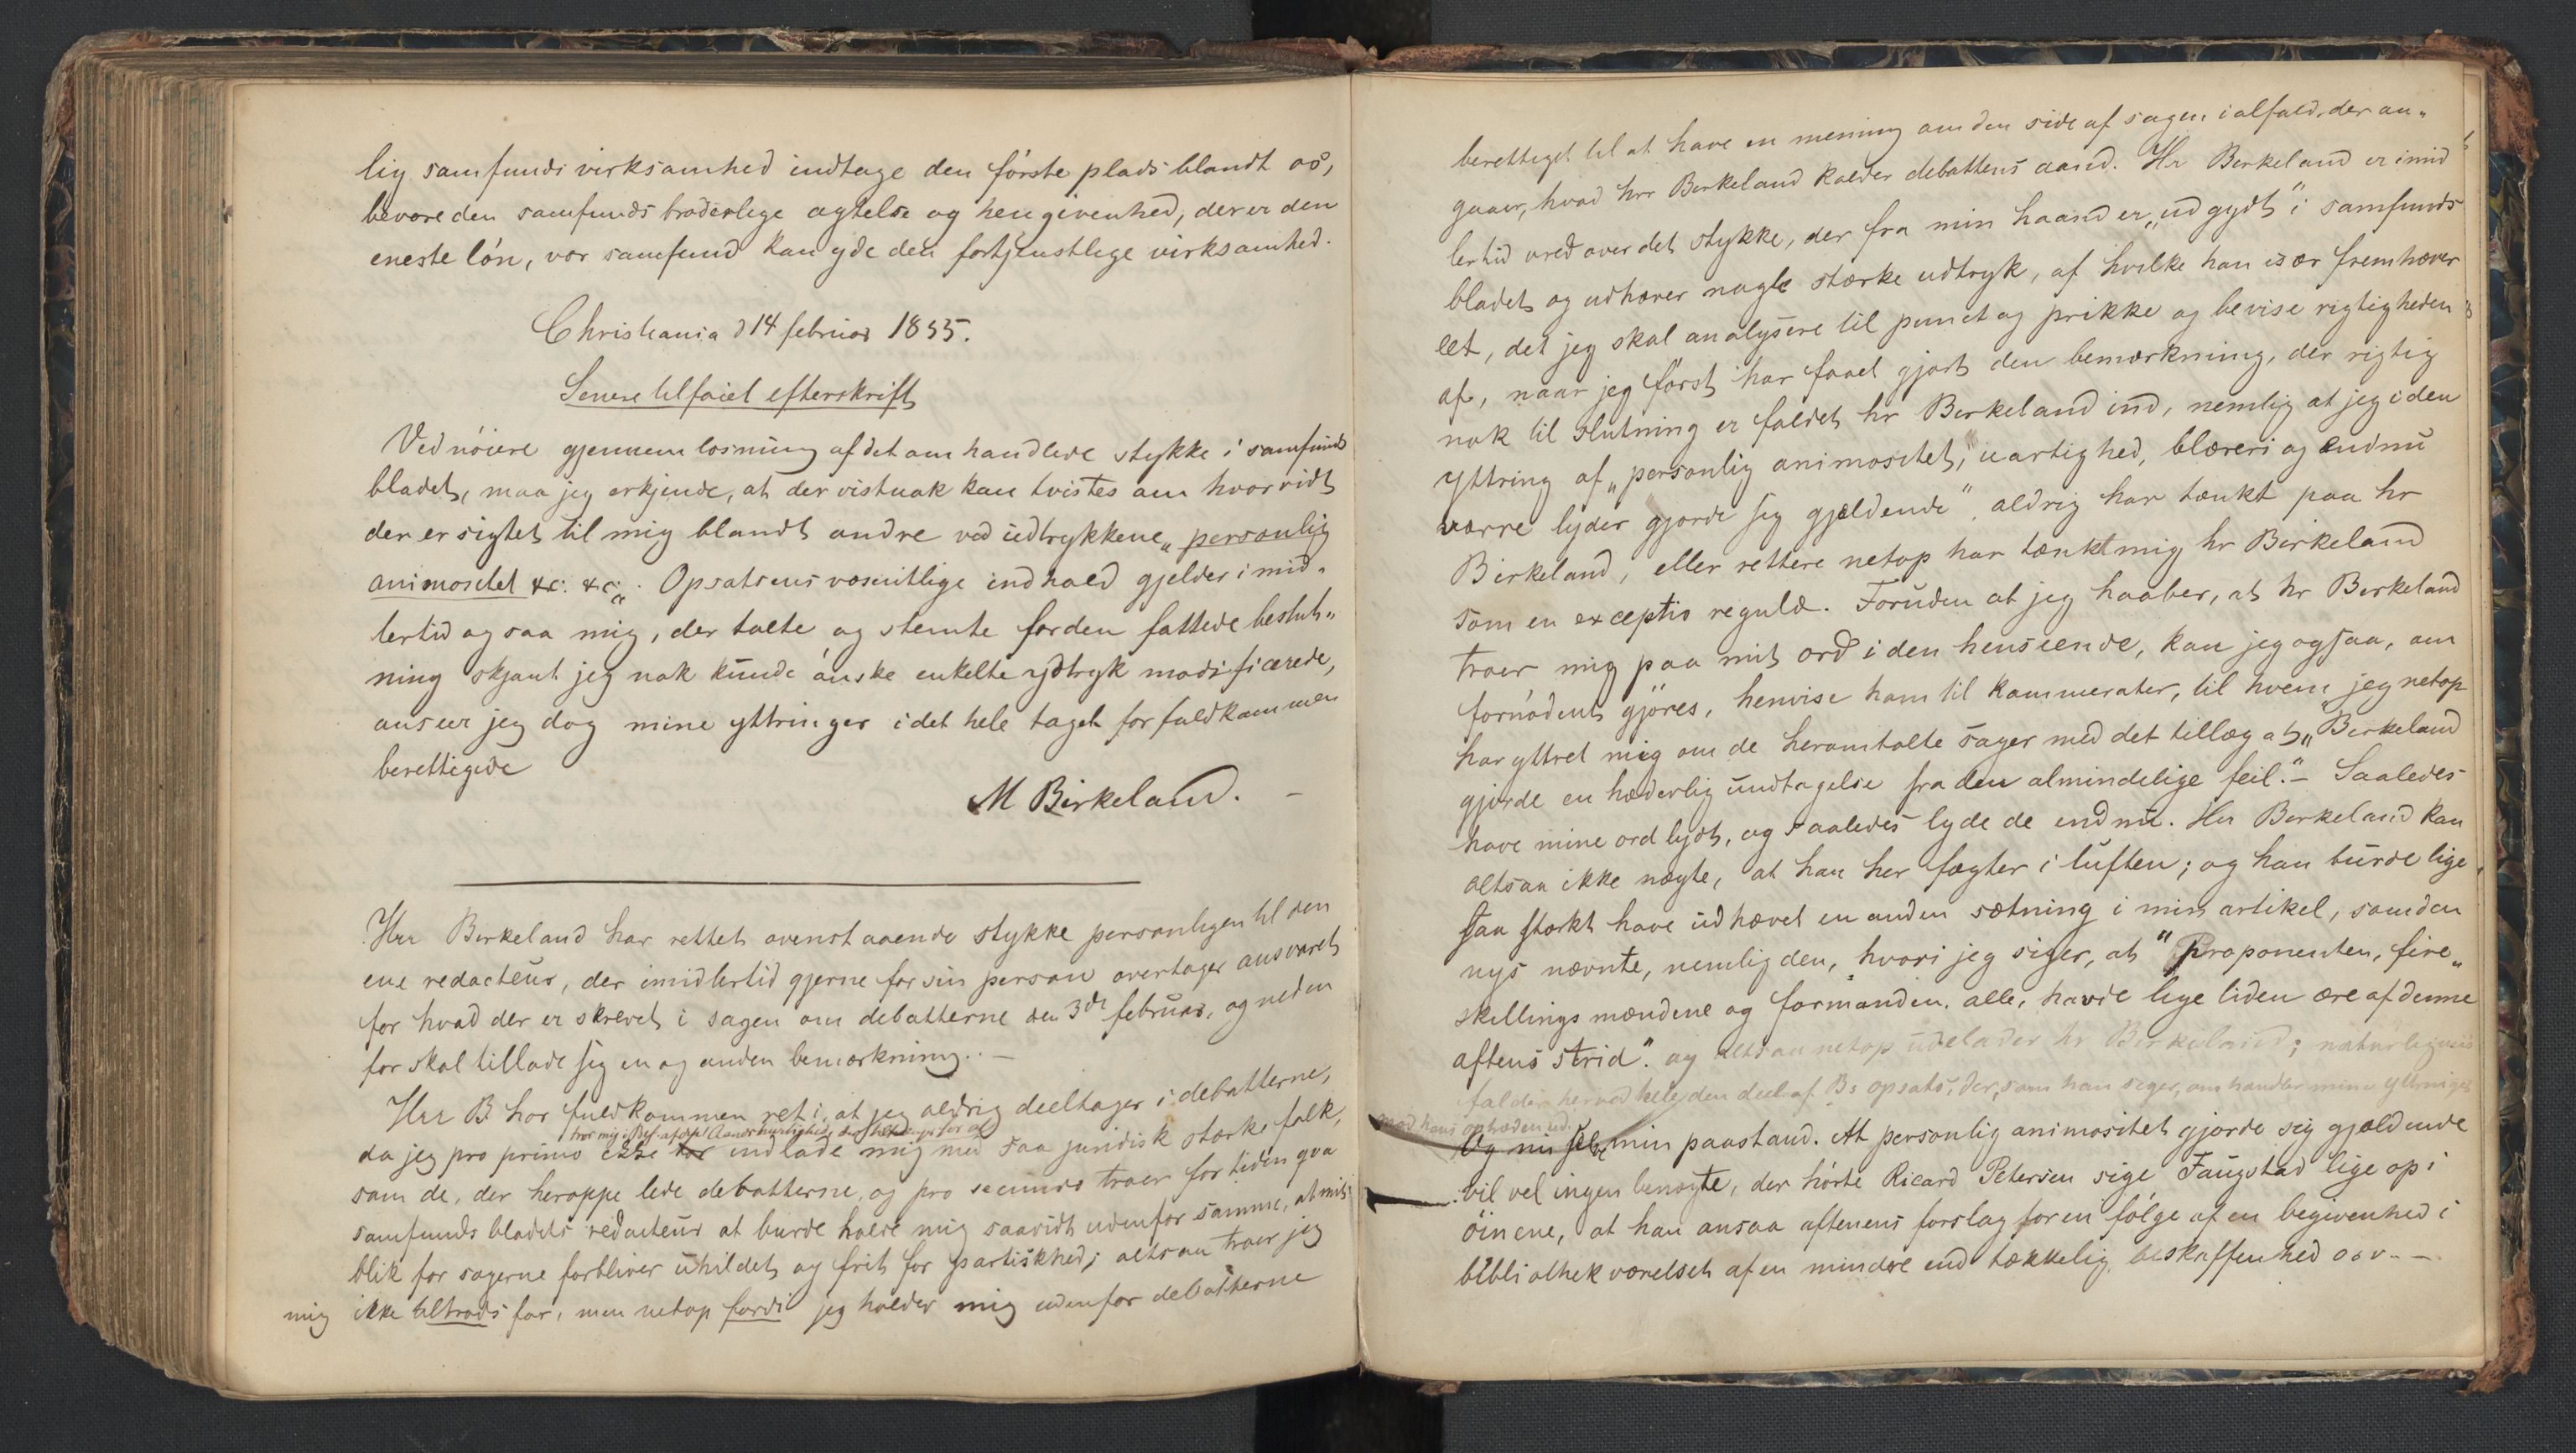 lig samfundsvirksamhed indtage den første plads blandt os,
bevare den samfunds broderlige agtelse og hengivenhed, der er den
eneste løn, vor samfund kan yde den fortjenstlige virksamhed.
Christiania d 14 februar 1855.
Senere tilføiet efterskrift
Ved nöiere gjennemlæsning af det omhandlede stykke i samfunds
bladet, maa jeg erkjende, at der vistnok kan tvistes om hvorvidt
der er sigtet til mig blandt andre ved udtrykkene „personlig
animositet &c: &c:“. Opsatsens væsentlige indhold gjelder imid-
lertid ogsaa mig, der talte og stemte for den fattede beslut-
ning skjønt jeg nok kunde ønske enkelte udtryk modificerede,
anseer jeg dog mine yttringer i det hele taget for fuldkommen
berettigede
M Birkeland. –
Herr Birkeland har rettet ovenstaaende stykke personligen til den
ene redacteur, der imidlertid gjerne for sin person overtager ansvaret
for hvad der er skrevet i sagen om debatterne den 3de februar, og neden
for skal tillade sig en og anden bemærkning. –
Herr B har fuldkommen ret i, at jeg aldrig deeltager i debatterne,
da jeg pro primo ikke tør indlade mig med saa juridisk stærke folk,
som de, der heroppe lede debatterne, og pro secundo troer for tiden qva
samfundsbladets redacteur at burde holde mig saavidt udenfor samme, at mit
blik for sagerne forbliver uhildet og frit for partiskhed; altsaa troer jeg
mig ikke tiltrods for, men netop fordi jeg holder mig udenfor debatterne
berettiget til at have en mening om den side af sagen ialfald, der an-
gaaer, hvad hrr Birkeland kalder debattens aand. Hr Birkeland er imid
lertid vred over det stykke, der fra min haand er „udgydt“ i samfunds
bladet og udhæver nogle stærke udtryk, af hvilke han især fremhæver
eet, det jeg skal analysere til punct og prikke og bevise rigtigheden
af, naar jeg først har faaet gjort den bemærkning, der rigtig
nok til slutning er faldet hr Birkeland ind, nemlig at jeg i den
yttring af „personlig animositet, uartighed, blæreri og endnu
værre lyder gjorde sig gjældende“ aldrig har tænkt paa hr
Birkeland, eller rettere netop har tænkt mig hr Birkeland
som en exceptio regulæ. Foruden at jeg haaber, at hr Birkeland
troer mig paa mit ord i den henseende, kan jeg ogsaa, om
fornødent gjöres, henvise ham til kammerater, til hvem jeg netop
har yttret mig om de heromtalte sager med det tillæg at „Birkeland
gjorde en hæderlig undtagelse fra den almindelige feil.“ – Saaledes
have mine ord lydt, og saaledes lyde de endnu. Herr Birkeland kan
altsaa ikke nægte, at han her fægter i luften; og han burde lige
saa stærkt have udhævet en anden sætning i min artikel, som den
nys nævnte, nemlig den, hvori jeg siger, at "Proponenten, fire-
skillingsmændene og formanden, alle, havde lige liden ære af denne
aftens strid“. og altsaa netop udelader hr Birkeland; naturligviis
falder herved hele den deel af Bs opsats, der, som han siger, omhandler mine yttringer
mod hans optræden ud.
Og nu min paastand. At personlig animositet gjorde sig gjældende
vil vel ingen benægte, der hörte Ricard Petersen sige Faugstad lige op i
öinene, at han ansaa aftenens forslag for en følge af en begivenhed i
bibliothekværelset af en mindre end tækkelig beskaffenhed osv. –